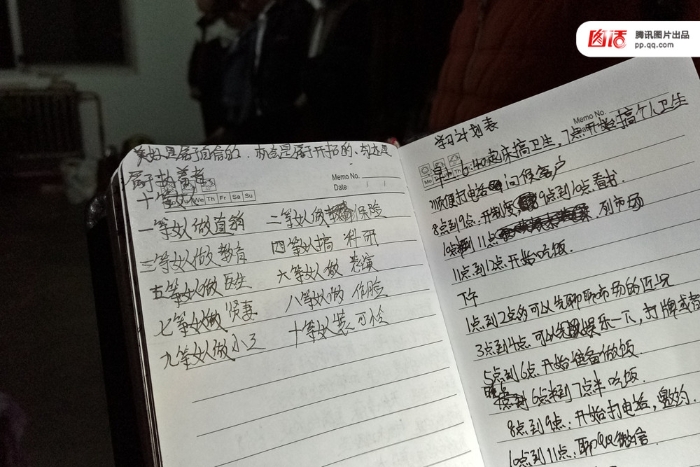 图话 腾讯图片出品
pp.qq.com
美好是属于自信的,机遇是属于开拓的,
属于执着者
Memo No.
Date / /
十等女人
We Th Fr Sa Su
一等女人做直销 二等女人做保险
三等女人做教育 四等女人搞科研
五等女人做医生 六等女人做表演
七等女人做贤妻 八等女人做作脸
九等女人做小三 十等女人装可怜
学习计划表
Memo No.
早上6:40起来搞卫生,7点开始搞个人卫生
打电话问候客户
8点到9点:开制度 9点到10点看书
11点 列市场
11点到12点开始吃饭
下午
1点到2点的可以先聊聊市场的近况
3点到4点可以娱乐一下,打牌或者
5点到6点开始准备做饭.
6点到7点半吃饭.
8点到9点:开始打电话,邀约.
10点到11点:聊QQ微信